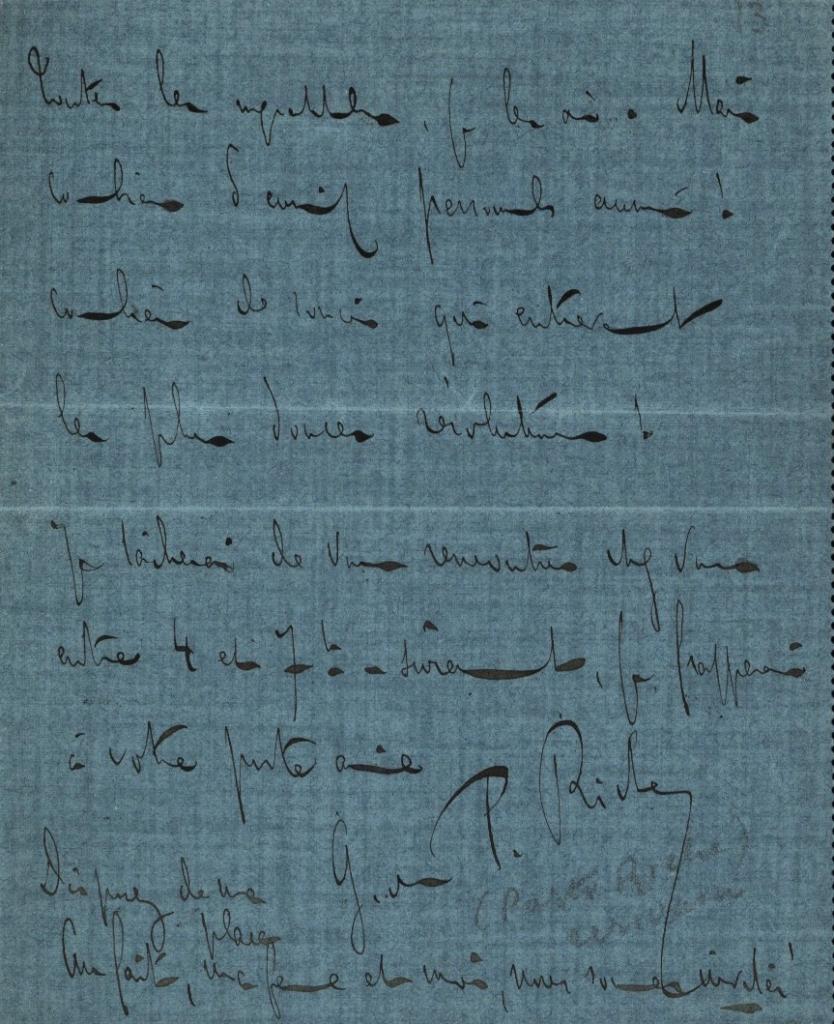 13
Toutes les sympathies, je les ai. Mais
combien d'ennuis personnels aussi!
combien de soucis qui entravent
les plus douces résolutions!
Je tâcherai de vous rencontrer chez vous
entre 4 et 7h - sûrement, je frapperai
à votre porte amie
P. Riche
Disposez de ma
place
Au fait, ma femme et moi, nous sommes invités!